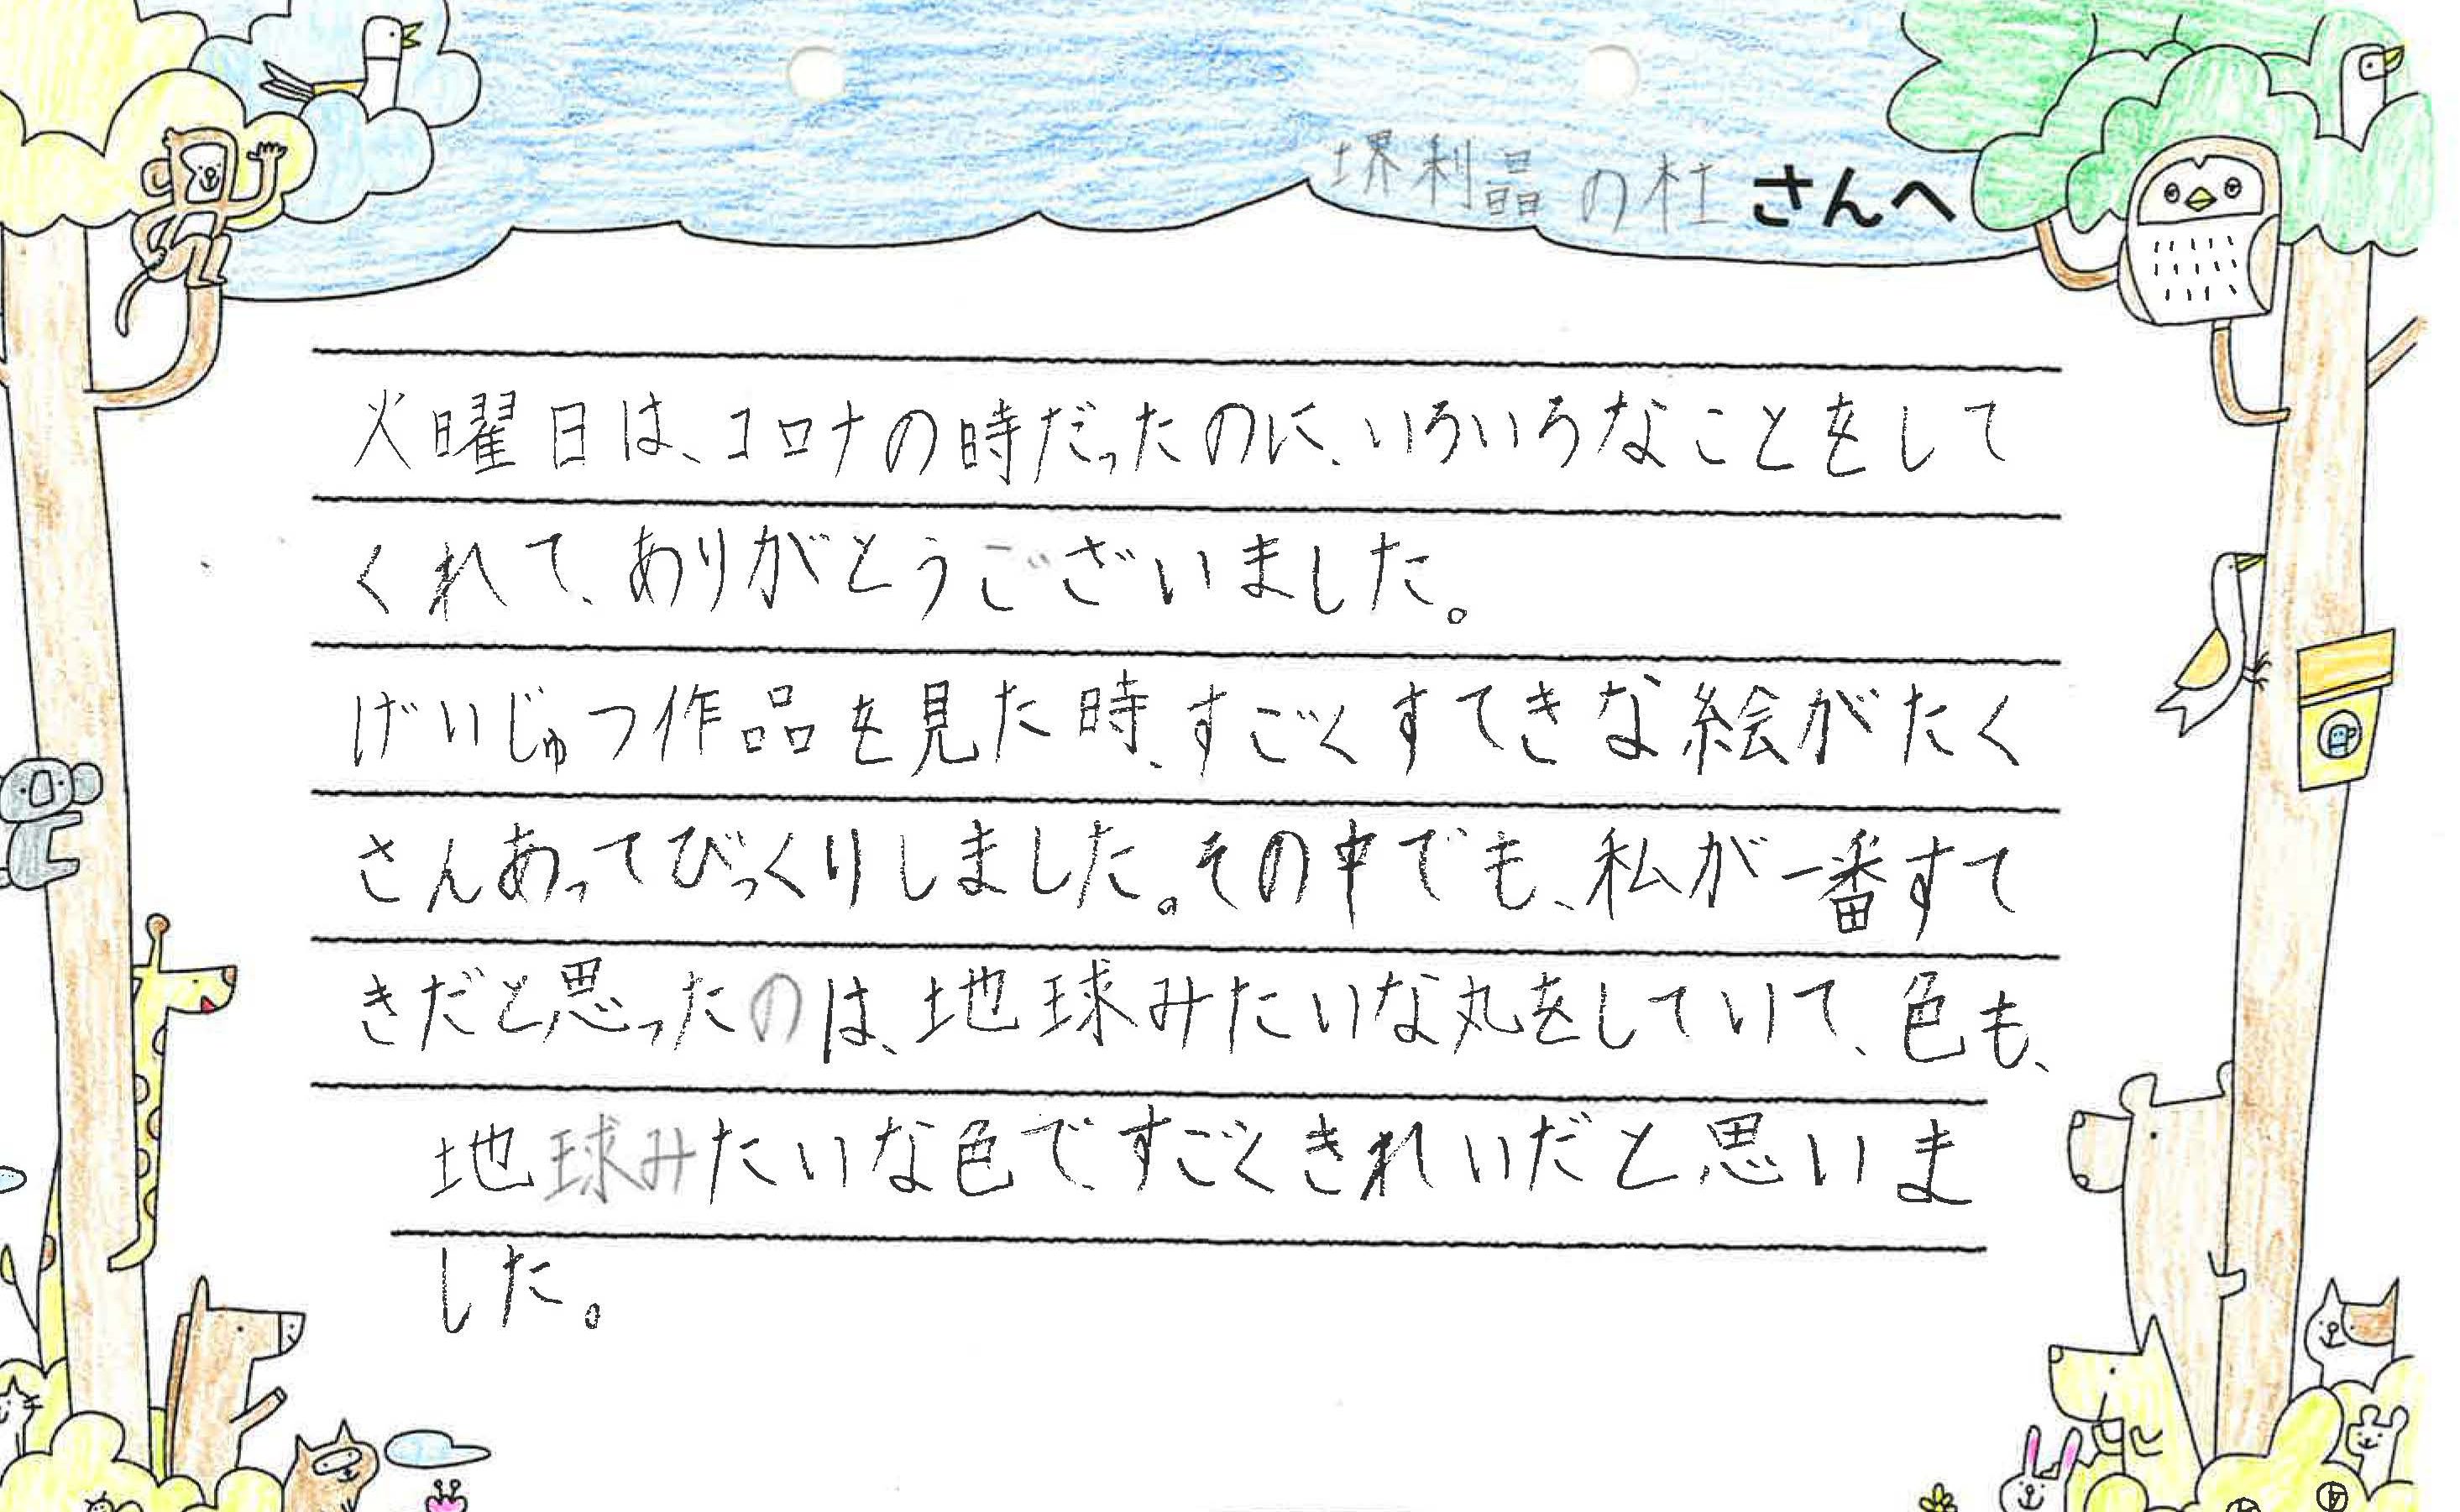 堺利晶の杜さんへ
火曜日は、コロナの時だったのに、いろいろなことをして
くれて、ありがとうございました。
げいじゅつ作品を見た時、すごくすてきな絵がたく
さんあってびっくりしました。その中でも、私が一番すて
きだと思ったのは、地球みたいな丸をしていて、色も、
地球みたいな色で、すごくきれいだと思いま
した。